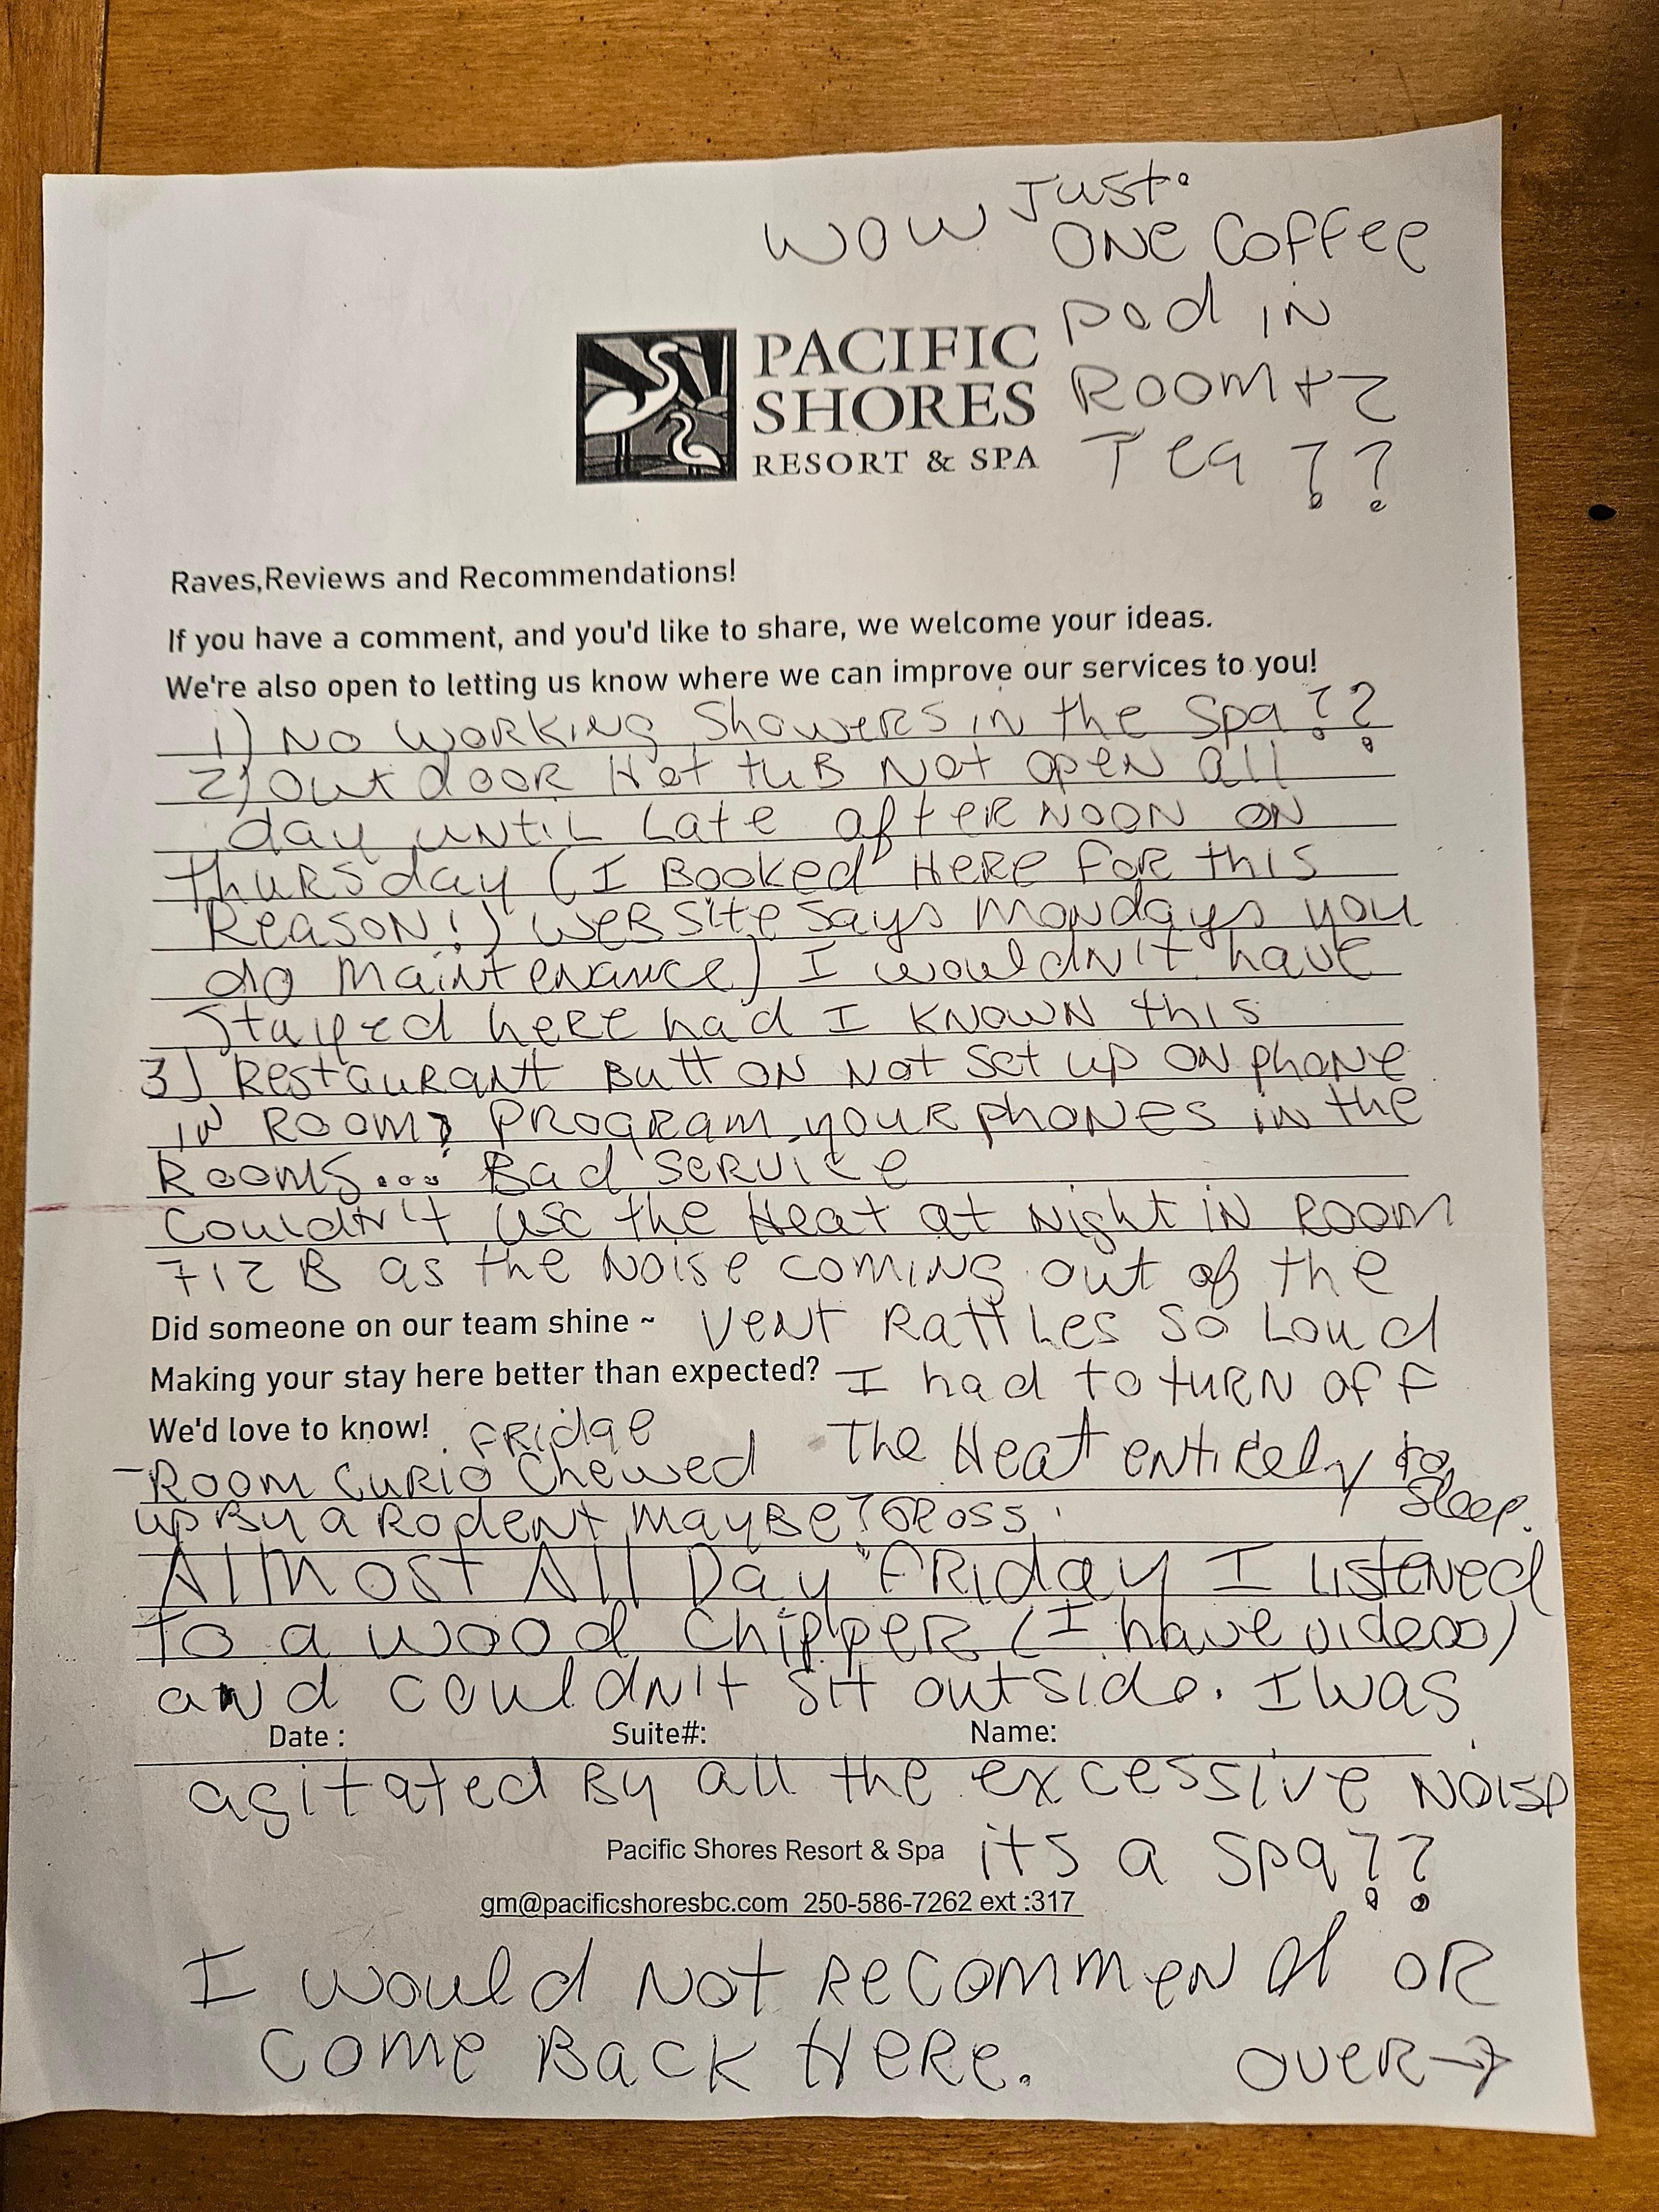 WOW Just
ONE COFFEE
pod in
Room + 2
Tea ??
PACIFIC
SHORES
RESORT & SPA
Raves,Reviews and Recommendations!
If you have a comment, and you'd like to share, we welcome your ideas.
We're also open to letting us know where we can improve our services to you!
1) NO WORKING Showers in the Spa??
2) Outdoor Hot tub Not open all
day until Late afternoon on
Thursday (I Booked Here for this
Reason!) website says Mondays you
do maintenance) I wouldn't have
Stayed here had I known this
3) Restaurant Button Not set up on phone
in Room? Program your phones in the
Rooms... Bad Service
Couldn't use the Heat at Night in Room
712 B as the Noise coming out of the
Did someone on our team shine ~ Vent Rattles so Loud
Making your stay here better than expected? I had to turn off
We'd love to know! The Heat entirely to
sleep.
Fridge
- Room Curio Chewed
up By a Rodent maybe? Gross
Almost All Day Friday I Listened
To a wood chipper (I have videos)
and couldn't sit outside. I was
Date : Suite#: Name:
agitated by all the excessive Noise
Pacific Shores Resort & Spa its a Spa??
gm@pacificshoresbc.com 250-586-7262 ext :317
I would Not Recommend OR
Come Back Here. OVER →